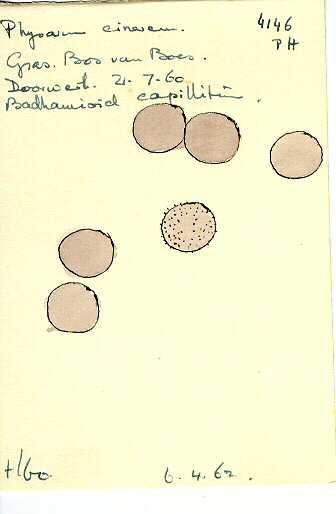 Physarum cinereum.
4146
PH
Gras. Bos van Boes.
Doorwerth. 21-7-60
Badhamioid capillitium.
6.4.62.